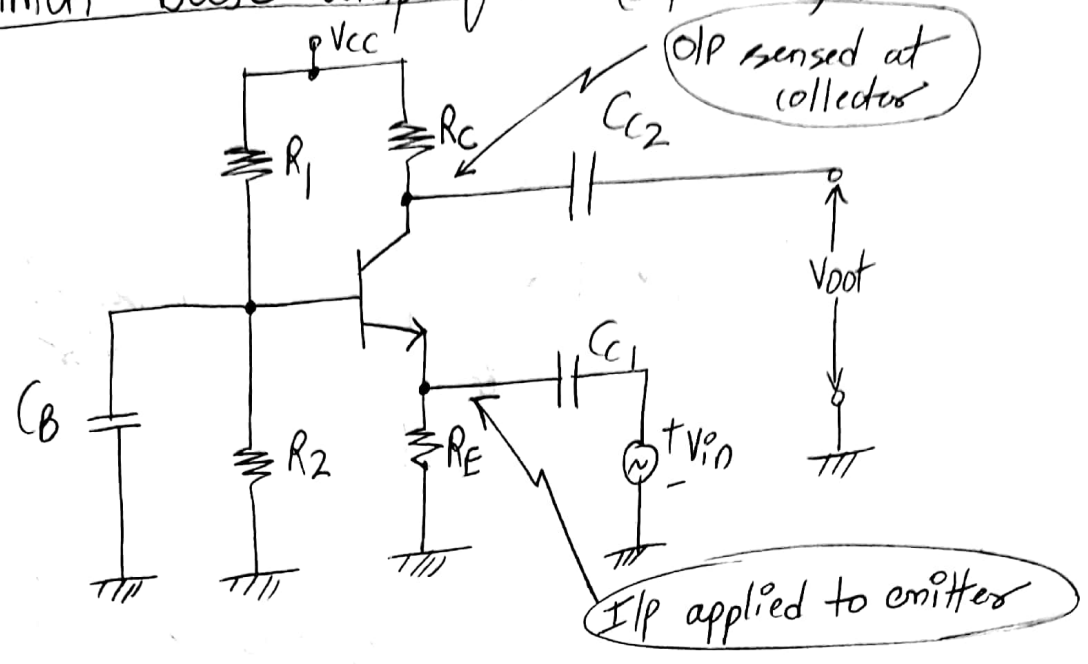 VCC
O/P sensed at
collector
RC
CC2
R1
Vout
CC1
CB
R2
RE
+
Vin
-
I/P applied to emitter